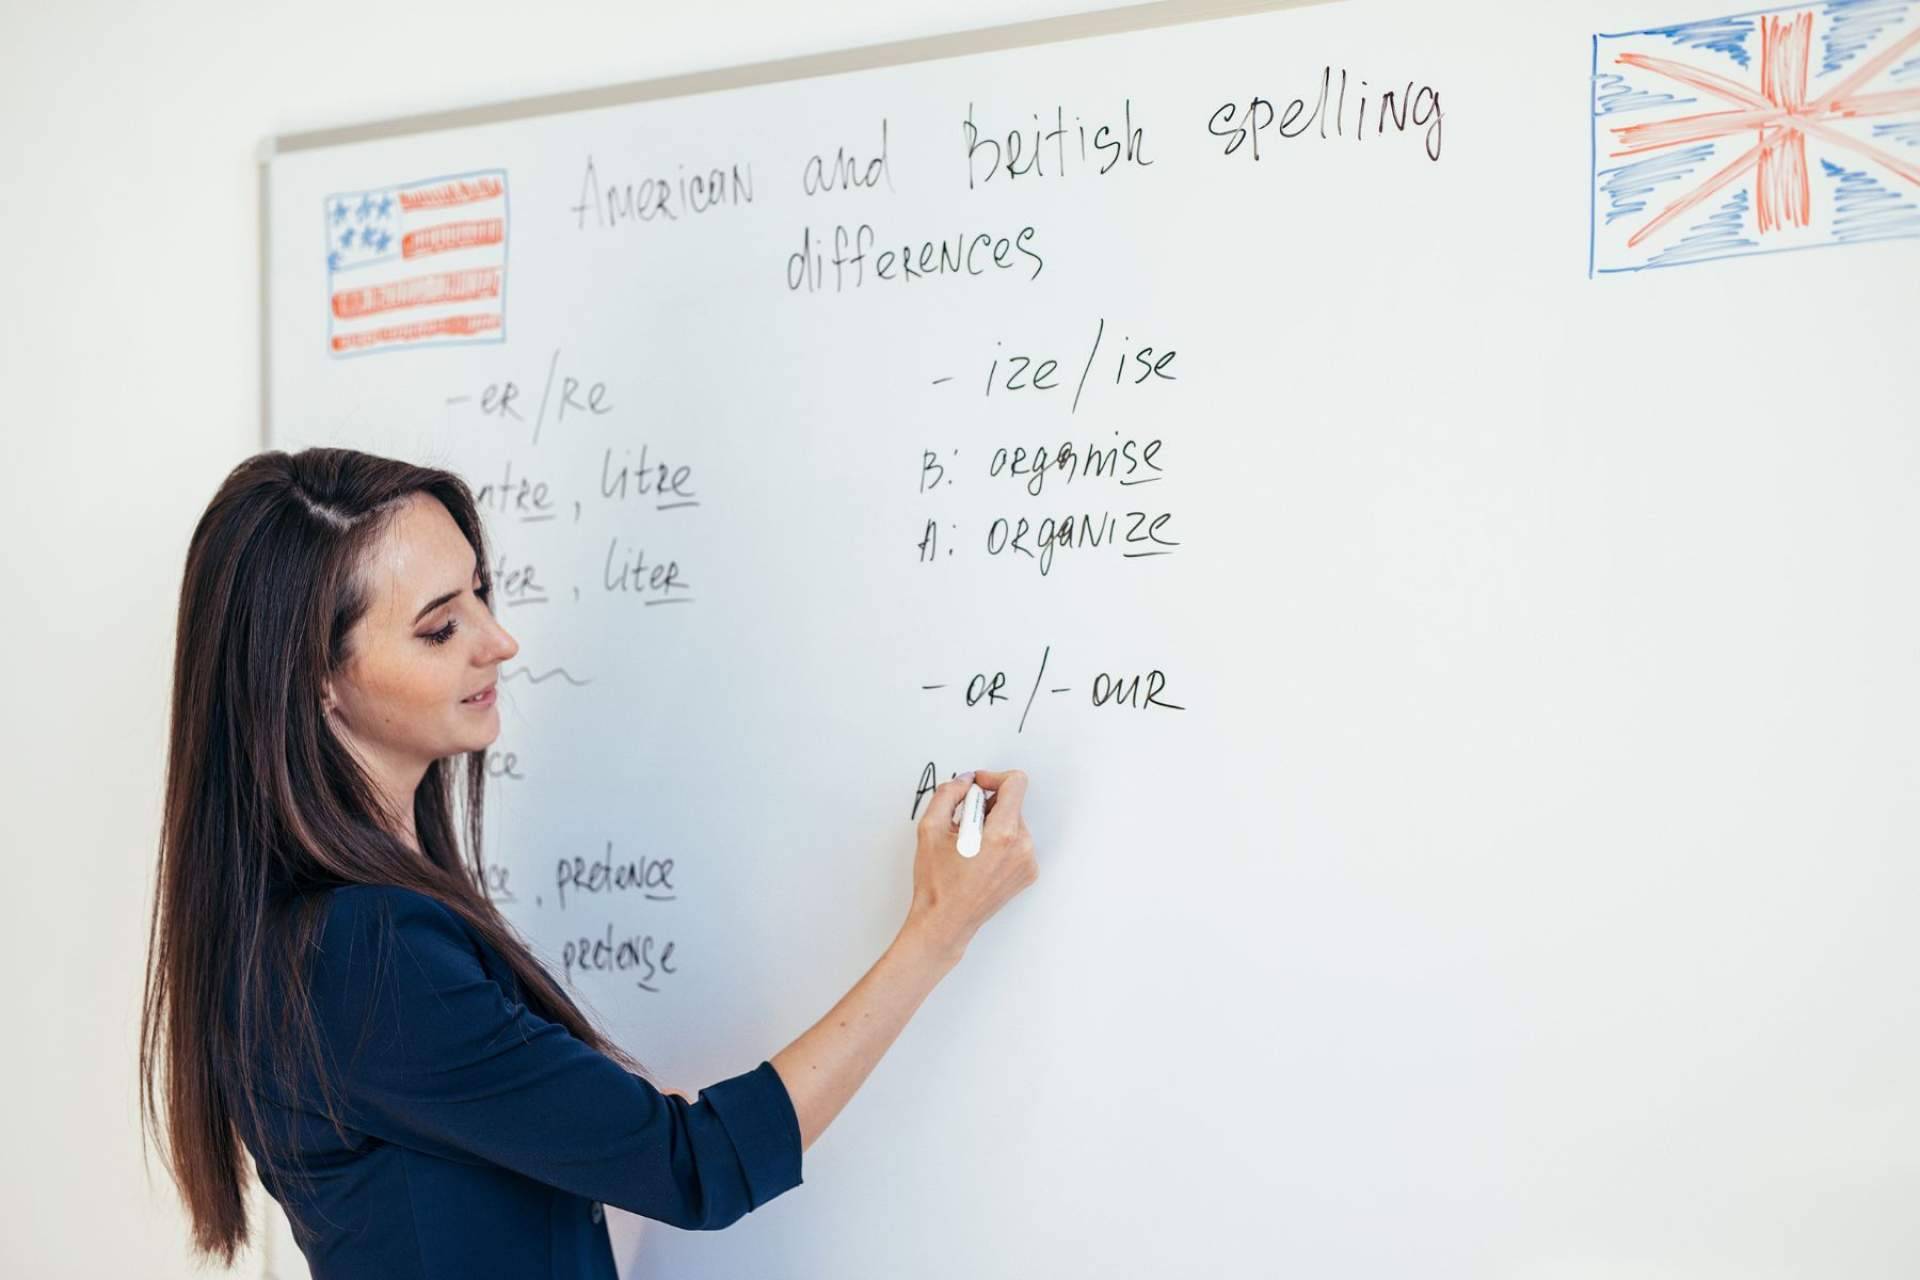 American and British spelling
differences
-er/re
ntre, litre
ter, liter
ce
ce, pretence
pretense
- ize/ise
B: organise
A: organize
-or/-our
A: